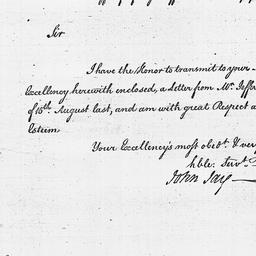 Sir
I have the Honor to transmit to your
Excellency herewith enclosed, a letter from Mr. Jeffer
of 15th. August last, and am with great Respect a
Esteem
Your Excellency's most obedt. & very
hble. Servt.
John Jay